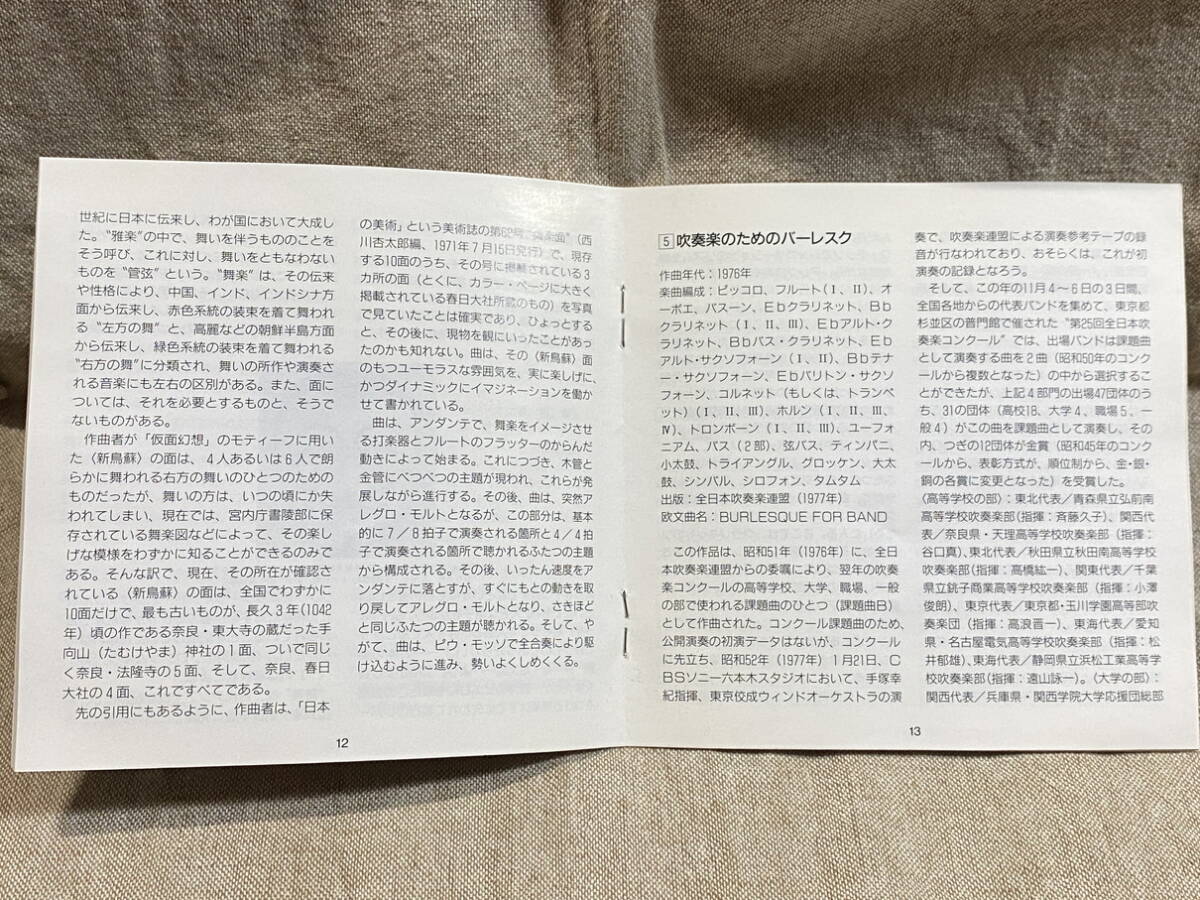 世紀に日本に伝来し、わが国において大成し
た。“雅楽”の中で、舞いを伴うもののことを
そう呼び、これに対し、舞いをともなわない
ものを“管弦”という。“舞楽”は、その伝来
や性格により、中国、インド、インドシナ方
面から伝来し、赤色系統の装束を着て舞われ
る“左方の舞”と、高麗などの朝鮮半島方面
から伝来し、緑色系統の装束を着て舞われる
“右方の舞”に分類され、舞いの所作や演奏さ
れる音楽にも左右の区別がある。また、面に
ついては、それを必要とするものと、そうで
ないものがある。
作曲者が「仮面幻想」のモティーフに用い
た〈新鳥蘇〉の面は、4人あるいは6人で朗
らかに舞われる右方の舞いのひとつのための
ものだったが、舞いの方は、いつの頃にか失
われてしまい、現在では、宮内庁書陵部に保
存されている舞楽図などによって、その楽し
げな模様をわずかに知ることができるのみで
ある。そんな訳で、現在、その所在が確認さ
れている〈新鳥蘇〉の面は、全国でわずかに
10面だけで、最も古いものが、長久3年(1042
年)頃の作である奈良・東大寺の蔵だった手
向山(たむけやま)神社の1面、ついで同じ
く奈良・法隆寺の5面、そして、奈良、春日
大社の4面、これですべてである。
先の引用にもあるように、作曲者は、「日本
の美術」という美術誌の第62号“舞楽面”(西
川杏太郎編、1971年7月15日発行)で、現存
する10面のうち、その号に掲載されている3
カ所の面(とくに、カラー・ページに大きく
掲載されている春日大社所蔵のもの)を写真
で見ていたことは確実であり、ひょっとする
と、その後に、現物を観にいったことがあっ
たのかも知れない。曲は、その〈新鳥蘇〉面
のもつユーモラスな雰囲気を、実に楽しげに、
かつダイナミックにイマジネーションを働か
せて書かれている。
曲は、アンダンテで、舞楽をイメージさせ
る打楽器とフルートのフラッターのからんだ
動きによって始まる。これにつづき、木管と
金管にべつべつの主題が現われ、これらが発
展しながら進行する。その後、曲は、突然ア
レグロ・モルトとなるが、この部分は、基本
的に7/8拍子で演奏される箇所と4/4拍
子で演奏される箇所で聴かれるふたつの主題
から構成される。その後、いったん速度をア
ンダンテに落とすが、すぐにもとの動きを取
り戻してアレグロ・モルトとなり、さきほど
と同じふたつの主題が聴かれる。そして、や
がて、曲は、ピウ・モッソで全合奏により駆
け込むように進み、勢いよくしめくくる。
12
5 吹奏楽のためのバーレスク
作曲年代:1976年
楽曲編成:ピッコロ、フルート(Ⅰ、Ⅱ)、オ
ーボエ、バスーン、Ebクラリネット、Bb
クラリネット(Ⅰ、Ⅱ、Ⅲ)、Ebアルト・ク
ラリネット、Bbバス・クラリネット、Eb
アルト・サクソフォーン(Ⅰ、Ⅱ)、Bbテナ
ー・サクソフォーン、Ebバリトン・サクソ
フォーン、コルネット(もしくは、トランペ
ット)(Ⅰ、Ⅱ、Ⅲ)、ホルン(Ⅰ、Ⅱ、Ⅲ、
Ⅳ)、トロンボーン(Ⅰ、Ⅱ、Ⅲ)、ユーフォ
ニアム、バス(2部)、弦バス、ティンパニ、
小太鼓、トライアングル、グロッケン、大太
鼓、シンバル、シロフォン、タムタム
出版:全日本吹奏楽連盟(1977年)
欧文曲名:BURLESQUE FOR BAND
この作品は、昭和51年(1976年)に、全日
本吹奏楽連盟からの委嘱により、翌年の吹奏
楽コンクールの高等学校、大学、職場、一般
の部で使われる課題曲のひとつ(課題曲B)
として作曲された。コンクール課題曲のため、
公開演奏の初演データはないが、コンクール
に先立ち、昭和52年(1977年)1月21日、C
BSソニー六本木スタジオにおいて、手塚幸
紀指揮、東京佼成ウィンドオーケストラの演
奏で、吹奏楽連盟による演奏参考テープの録
音が行なわれており、おそらくは、これが初
演奏の記録となろう。
そして、この年の11月4~6日の3日間、
全国各地からの代表バンドを集めて、東京都
杉並区の普門館で催された“第25回全日本吹
奏楽コンクール”では、出場バンドは課題曲
として演奏する曲を2曲(昭和50年のコンク
ールから複数となった)の中から選択するこ
とができたが、上記4部門の出場47団体のう
ち、31の団体(高校18、大学4、職場5、一
般4)がこの曲を課題曲として演奏し、その
内、つぎの12団体が金賞(昭和45年のコンク
ールから、表彰方式が、順位制から、金・銀・
銅の各賞に変更となった)を受賞した。
〈高等学校の部〉:東北代表/青森県立弘前南
高等学校吹奏楽部(指揮:斉藤久子)、関西代
表/奈良県・天理高等学校吹奏楽部(指揮:
谷口真)、東北代表/秋田県立秋田南高等学校
吹奏楽部(指揮:高橋紘一)、関東代表/千葉
県立銚子商業高等学校吹奏楽部(指揮:小澤
俊朗)、東京代表/東京都・玉川学園高等部吹
奏楽団(指揮:高浪晋一)、東海代表/愛知
県・名古屋電気高等学校吹奏楽部(指揮:松
井郁雄)、東海代表/静岡県立浜松工業高等学
校吹奏楽部(指揮:遠山詠一)。〈大学の部〉:
関西代表/兵庫県・関西学院大学応援団総部
13